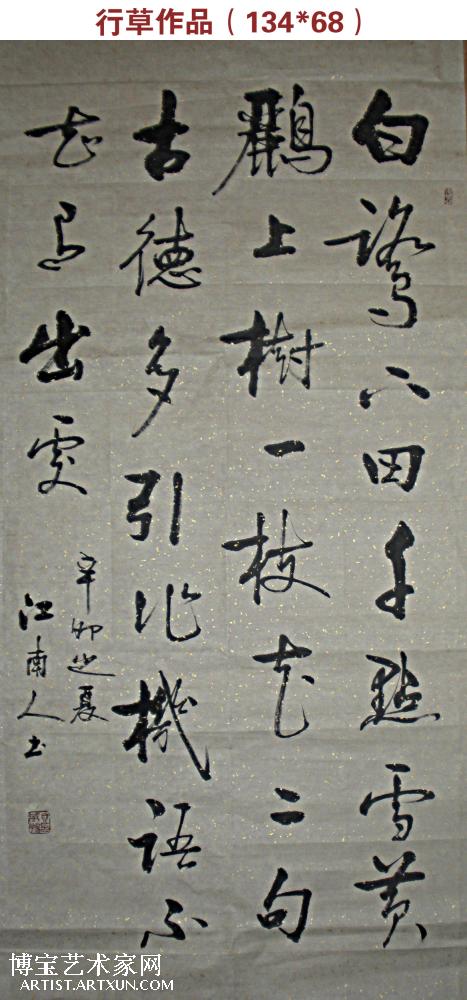 行草作品（134*68）
白鷺下田千點雪黄
鸝上樹一枝花二句
古德多引作機語不
知出處
辛卯之夏
江南人书
博宝艺术家网
ARTIST.ARTXUN.COM